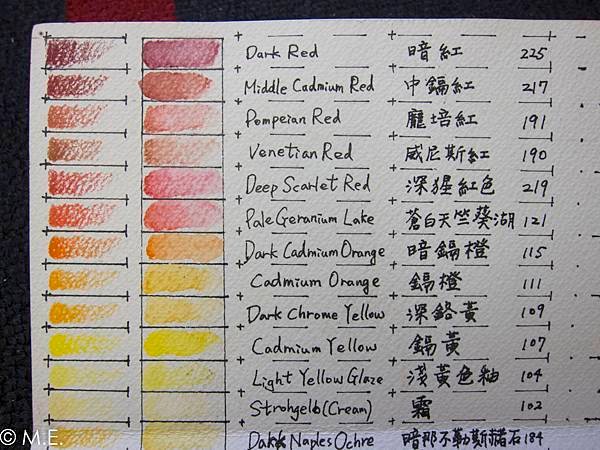 Dark Red 暗紅 225
Middle Cadmium Red 中鎘紅 217
Pompeian Red 龐培紅 191
Venetian Red 威尼斯紅 190
Deep Scarlet Red 深猩紅色 219
Pale Geranium Lake 蒼白天竺葵湖 121
Dark Cadmium Orange 暗鎘橙 115
Cadmium Orange 鎘橙 111
Dark Chrome Yellow 深鉻黃 109
Cadmium Yellow 鎘黃 107
Light Yellow Glaze 淺黃色釉 104
Strohgelb(Cream) 霜 102
Dark Naples Ochre 暗那不勒斯赭石 184
© M.E.